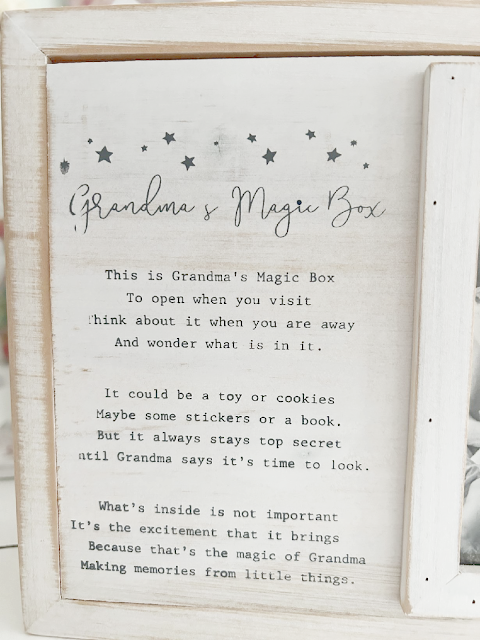 Grandma's Magic Box
This is Grandma's Magic Box
To open when you visit
Think about it when you are away
And wonder what is in it.
It could be a toy or cookies
Maybe some stickers or a book.
But it always stays top secret
ntil Grandma says it's time to look.
What's inside is not important
It's the excitement that it brings
Because that's the magic of Grandma
Making memories from little things.